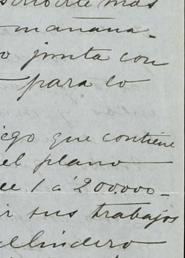 más
mañana-
o junta con
para lo
ego que contiene
el plano
de 1 á 200.000-
ir sus trabajos
ellindero